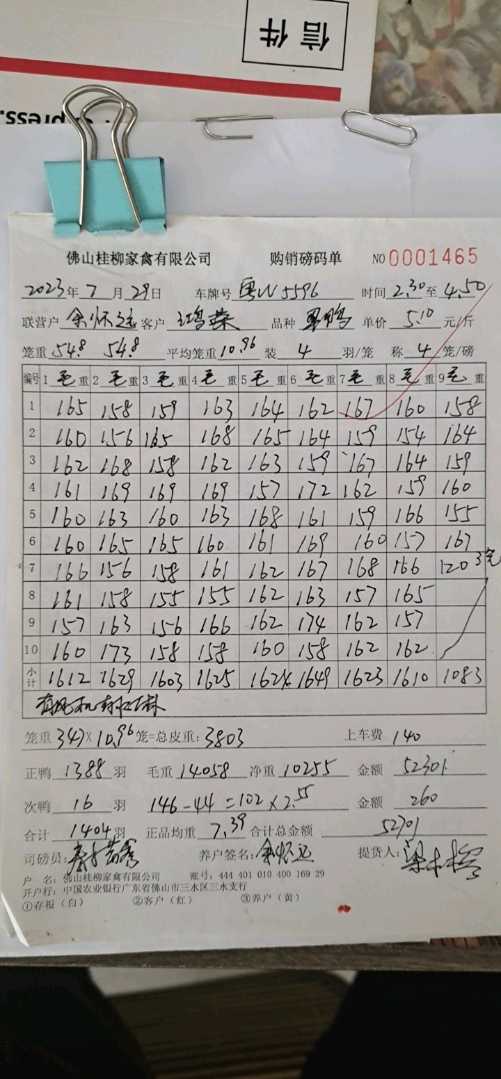 信件
xpress.
佛山桂柳家禽有限公司 购销磅码单 NO 0001465
2023年 7 月 29日 车牌号 粤W5596 时间 2.30 至 4.50
联营户 余怀远 客户 鸿荣 品种 男鸭 单价 5.10 元/斤
笼重 54.8 54.8 平均笼重 10.96 装 4 羽/笼 称 4 笼/磅
编号 1 毛 重 2 毛 重 3 毛 重 4 毛 重 5 毛 重 6 毛 重 7 毛 重 8 毛 重 9 毛 重
1 165 158 159 163 164 162 167 160 158
2 160 156 165 168 165 164 159 154 164
3 162 168 158 162 163 159 167 164 159
4 161 169 169 169 157 172 162 159 160
5 160 163 160 163 168 161 159 166 155
6 160 165 165 160 161 169 160 157 167
7 166 156 158 161 162 167 168 166 120 3笼
8 161 158 155 155 162 163 157 165
9 157 163 156 166 162 174 162 157
10 160 173 158 158 160 158 162 162
小计 1612 1629 1603 1625 1624 1649 1623 1610 1083
笼重 347 × 10.96 笼=总皮重: 3803 上车费 140
正鸭 1388 羽 毛重 14058 净重 10255 金额 52301
次鸭 16 羽 146-44=102×2.55 金额 260
合计 1404 羽 正品均重 7.39 合计总金额 52701
司磅员: 养户签名: 余怀远 提货人:
户 名: 佛山桂柳家禽有限公司 账号: 444 401 010 400 169 29
开户行: 中国农业银行广东省佛山市三水区三水支行
①存根(白) ②客户(红) ③养户(黄)